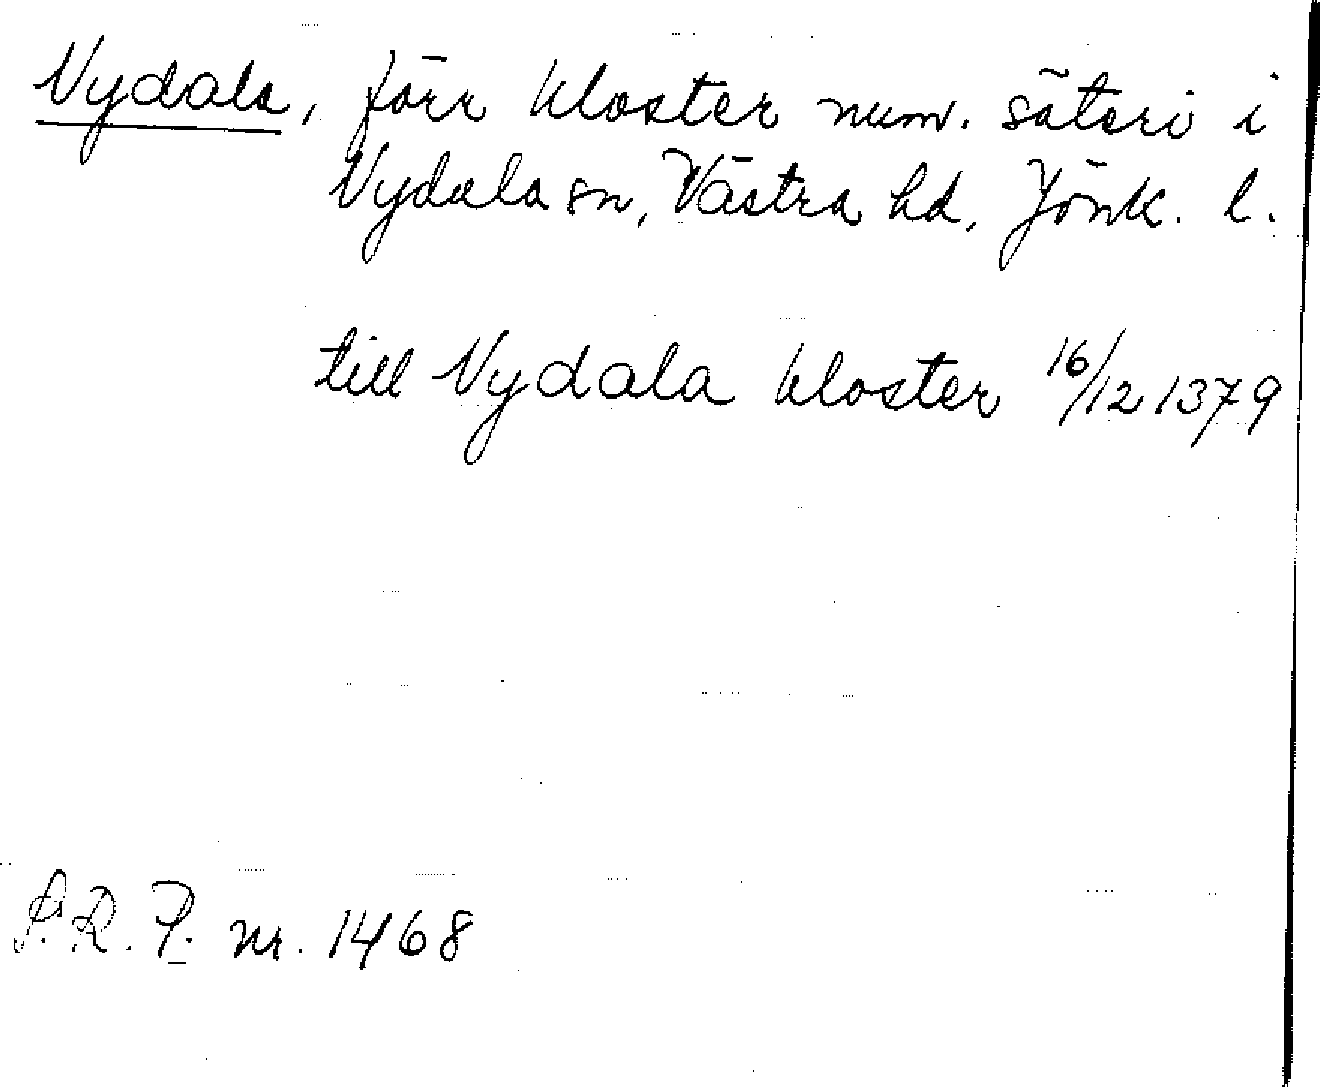 Nydala, förr kloster num. säteri i
Nydala sn, Västra hd, Jönk. l.
till Nydala kloster 16/12 1379
S.R.P. nr. 1468